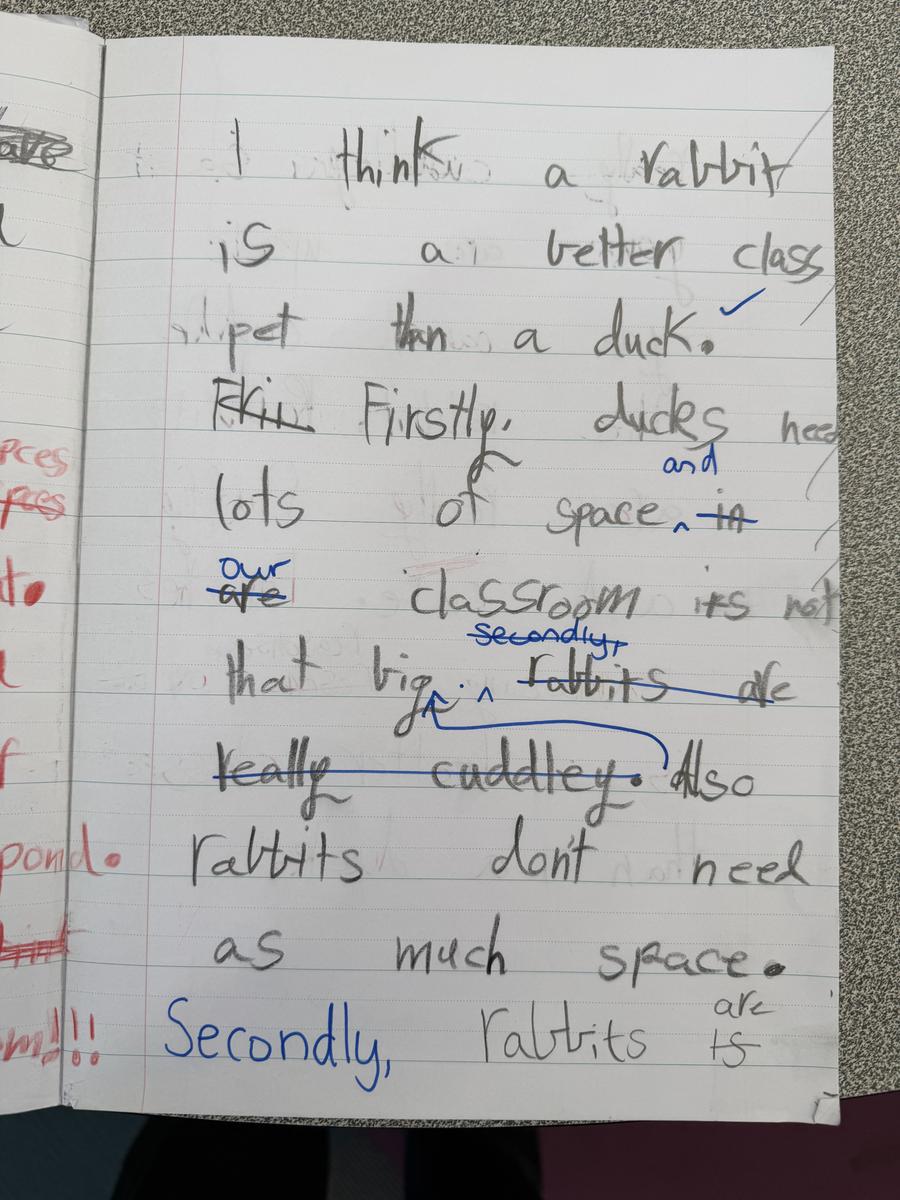 I think a rabbit
is a better class
pet than a duck.
Firstly, ducks need
and
lots of space in
our
are classroom its not
secondly,
that big. rabbits are
really cuddley. Also
rabbits don't need
as much space.
are
Secondly, rabbits is
pces
t.
pond.
m!!!